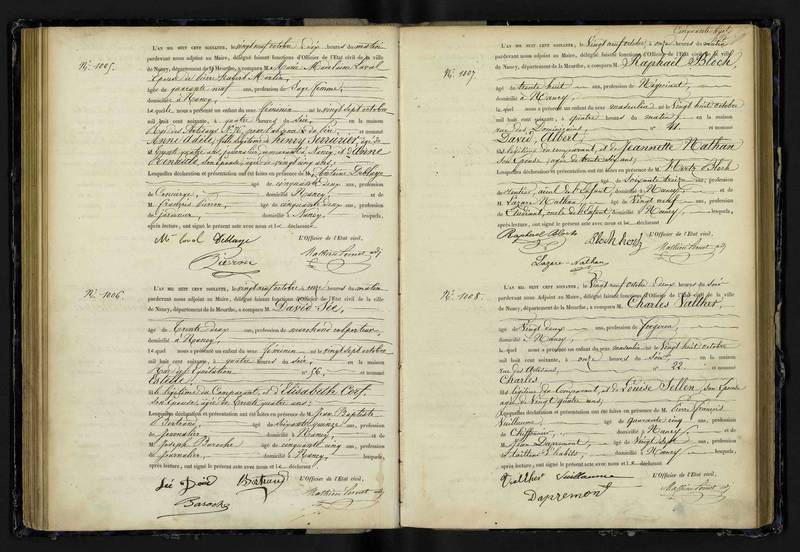 N.° 1005.
L'AN MIL HUIT CENT SOIXANTE, le vingt neuf octobre dix heures du matin
pardevant nous Adjoint au Maire, délégué faisant fonctions d'Officier de l'État civil de la ville
de Nancy, département de la Meurthe, a comparu M. Marie Madelaine Laval
épouse de Pierre François Martin,
âgé de quarante neuf ans, profession de Sage femme,
domicilié à Nancy,
Laquelle nous a présenté un enfant du sexe féminin né le vingt sept octobre
mil huit cent soixante, à quatre heures du soir, en la maison
et nommé
Anne Adèle, fille légitime de henry Serrurier, âgé de
Nancy, et d'Anne
Renaudde, son épouse, âgée de vingt cinq ans;
Lesquelles déclaration et présentation ont été faites en présence de M. Antoine Deblaye
âgé de cinquante deux ans, profession
de Concierge, domicilié à Nancy, et de
M. François Pierron âgé de cinquante deux ans, profession
de domicilié à Nancy, lesquels,
après lecture, ont signé le présent acte avec nous et le déclarant
L'Officier de l'État civil,
Me Laval Deblaye
Pierron
N.° 1006.
L'AN MIL HUIT CENT SOIXANTE, le vingt neuf octobre à onze heures du matin
pardevant nous Adjoint au Maire, délégué faisant fonctions d'Officier de l'État civil de la ville
de Nancy, département de la Meurthe, a comparu M. David Sée,
âgé de Trente deux ans, profession de marchand colporteur,
domicilié à Nancy,
Lequel nous a présenté un enfant du sexe féminin né le vingt sept octobre
mil huit cent soixante, à quatre heures du soir, en la maison
Rue de l'équitation n° 56, et nommé
Colette,
fille légitime du Comparant, et d'Elisabeth Cerf,
son épouse, âgée de Trente quatre ans;
Lesquelles déclaration et présentation ont été faites en présence de M. Jean Baptiste
Bertrand, âgé de ans, profession
de Journalier, domicilié à Nancy, et de
M. Joseph Baroche âgé de cinquante cinq ans, profession
de Journalier, domicilié à Nancy, lesquels,
après lecture, ont signé le présent acte avec nous et le déclarant
L'Officier de l'État civil,
Sée David Bertrand
Baroche
N.° 1007.
L'AN MIL HUIT CENT SOIXANTE, le Vingt neuf octobre, à onze heures du matin
pardevant nous Adjoint au Maire, délégué faisant fonctions d'Officier de l'État civil de la ville
de Nancy, département de la Meurthe, a comparu M. Raphaël Bloch,
âgé de trente huit ans, profession de Négociant,
domicilié à Nancy,
Lequel nous a présenté un enfant du sexe masculin né le Vingt huit octobre
mil huit cent soixante, à quatre heures du matin, en la maison
rue des Dominicains, n° 41. et nommé
David Albert,
fils légitime du comparant, et de Jeannette Nathan
son épouse, âgée de trente six ans;
Lesquelles déclaration et présentation ont été faites en présence de M. Hertz Bloch
âgé de Soixante treize ans, profession
de rentier, aïeul de l'enfant, domicilié à Nancy, et de
M. Lazare Nathan âgé de Vingt neuf ans, profession
de Etudiant, oncle de l'enfant, domicilié à Nancy, lesquels,
après lecture, ont signé le présent acte avec nous et le déclarant
L'Officier de l'État civil,
Raphaël Bloch Bloch hertz
Lazare Nathan
N.° 1008.
L'AN MIL HUIT CENT SOIXANTE, le Vingt neuf octobre deux heures du soir
pardevant nous Adjoint au Maire, délégué faisant fonctions d'Officier de l'État civil de la ville
de Nancy, département de la Meurthe, a comparu M. Charles Valther,
âgé de Vingt deux ans, profession de forgeron,
domicilié à Nancy,
Lequel nous a présenté un enfant du sexe masculin né le Vingt huit octobre
mil huit cent soixante, à onze heures du soir, en la maison
Rue des Artisans, n° 22. et nommé
Charles
fils légitime du Comparant, et de Louise Sellen, son épouse
âgée de Vingt quatre ans;
Lesquelles déclaration et présentation ont été faites en présence de M. Pierre François
Vuillaume, âgé de quarante cinq ans, profession
de Chiffonnier, domicilié à Nancy, et de
M. Jean Dapremont, âgé de Vingt sept ans, profession
de tailleur d'habits, domicilié à Nancy lesquels,
après lecture, ont signé le présent acte avec nous et le déclarant
L'Officier de l'État civil,
Valther Vuillaume
Dapremont